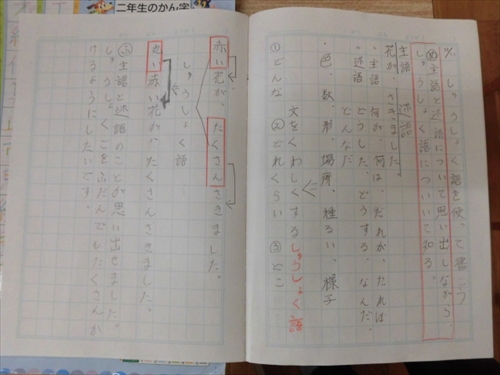 しゅうしょく語を使って書こう
主語と述語について思い出しながら、
しゅうしょく語についいて知る。
主語 述語
花がさきました。
・主語 何が、何は、だれが、だれは
・述語 どうする、なんだ、
どんなだ
・色、数、形、場所、様子
文をくわしくするしゅうしょく語
①どんな ②どれくらい ③どこ
赤い花が、たくさんさきました。
しゅうしょく語
赤い花が、たくさんさきました。
主語と述語のことが思い出せました。
しゅうしょくごをふだんでもたくさんか
けるようにしたいです。
二年生のかん字